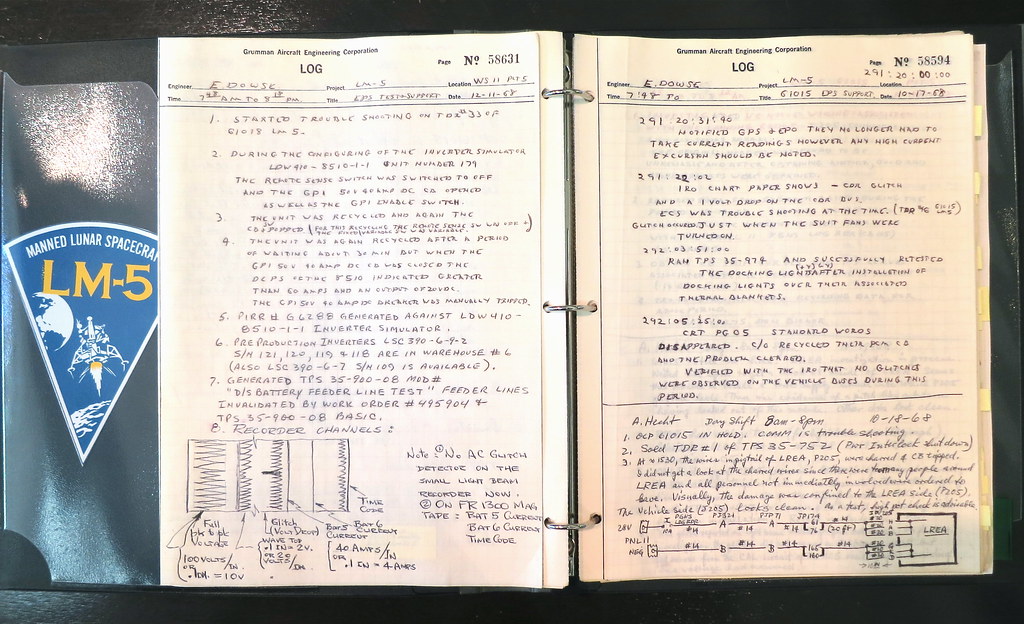 MANNED LUNAR SPACECRA
LM-5
Grumman Aircraft Engineering Corporation
LOG
Page Nº 58631
Engineer E. DOWSE Project LM-5 Location WS 11 Pt 5
Time 7 AM TO 8 PM Title EPS TEST & SUPPORT Date 12-11-68
1. STARTED TROUBLE SHOOTING ON TDR #33 OF
61018 LM 5.
2. DURING THE CONFIGURING OF THE INVERTER SIMULATOR
LDW 410-8510-1-1 UNIT NUMBER 179
THE REMOTE SENSE SWITCH WAS SWITCHED TO OFF
AND THE GPI 50V 40 AMP DC CB OPENED
AS WELL AS THE GPI ENABLE SWITCH.
3. THE UNIT WAS RECYCLED AND AGAIN THE
CB'S POPPED (FOR THIS RECYCLING THE REMOTE SENSE SW WN OFF &
THE FIXED/VARIABLE SW IN VARIABLE.)
4. THE UNIT WAS AGAIN RECYCLED AFTER A PERIOD
OF WAITING ABOUT 30 MIN BUT WHEN THE
GPI 50V 40 AMP DC CB WAS CLOSED THE
DC PS OF THE 8510 INDICATED GREATER
THAN 60 AMPS AND AN OUTPUT OF 20VDC.
THE GPI 50V 40 AMP DC BREAKER WAS MANUALLY TRIPPED.
5. PIRR # G6288 GENERATED AGAINST LDW 410-
8510-1-1 INVERTER SIMULATOR.
6. PREPRODUCTION INVERTERS LSC 390-6-9-2
S/N 121, 120, 119 & 118 ARE IN WAREHOUSE #6
(ALSO LSC 390-6-7 S/N 109 IS AVAILABLE).
7. GENERATED TPS 35-900-08 MOD #
"D/S BATTERY FEEDER LINE TEST" FEEDER LINES
INVALIDATED BY WORK ORDER #495904 &
TPS 35-900-08 BASIC.
8. RECORDER CHANNELS:
Note: ① No AC GLITCH
DETECTOR ON THE
SMALL LIGHT BEAM
RECORDER NOW.
② ON FR 1300 MAG
TAPE = BAT 5 CURRENT
BAT 6 CURRENT
TIME CODE
TIME
CODE
Full
pk to pk
VOLTAGE
100 VOLTS/IN
OR
.1 IN. = 10V
Glitch
(VOLT DROP)
WAVE TOP
.1 IN = 2V.
OR 20
VOLTS/IN.
BAT 5
CURRENT
BAT 6
CURRENT
40 AMPS/IN
OR
.1 IN = 4 AMPS
Grumman Aircraft Engineering Corporation
LOG
Page Nº 58594
291:20:00:00
Engineer E. DOWSE Project LM-5 Location
Time 7:48 TO Title 61015 EPS SUPPORT Date 10-17-68
291:20:31:40
NOTIFIED GPS & EPO THEY NO LONGER HAD TO
TAKE CURRENT READINGS HOWEVER ANY HIGH CURRENT
EXCURSION SHOULD BE NOTED.
291:22:02
IRO CHART PAPER SHOWS - CDR GLITCH
AND A 1 VOLT DROP ON THE CDR BUS.
ECS WAS TROUBLE SHOOTING AT THE TIME. (TDR 61015 LM 5)
GLITCH OCCURRED JUST WHEN THE SUIT FANS WERE
TURNED ON.
292:03:51:00
RAN TPS 35-974 AND SUCCESSFULLY RETESTED
THE DOCKING LIGHT AFTER INSTALLATION OF
DOCKING LIGHTS OVER THEIR ASSOCIATED
THERMAL BLANKETS.
292:05:15:0
CRT PG 05 STANDARD WORDS
DISAPPEARED. C/O RECYCLED THEIR PCM CB
AND THE PROBLEM CLEARED.
VERIFIED WITH THE IRO THAT NO GLITCHES
WERE OBSERVED ON THE VEHICLE BUSES DURING THIS
PERIOD.
A. Hecht Day Shift 8am-8pm 10-18-68
1. OCP 61015 IN HOLD. COMM is trouble shooting.
2. Sold TDR #1 of TPS 35-752 (Pwr Interlock shut down)
3. At ≈1530, the wires in pigtail of LREA, P205, were charred & CB tripped.
I did not get a look at the charred wires since there were too many people around
LREA and all personnel not immediately involved were ordered to
leave. Visually, the damage was confined to the LREA side (P205).
The Vehicle side (J205) looks clean. As a test,
28V A #14 A #14 (20 ft) #14 LREA
PNL 11
NEG #14 B #14 B #14 #14